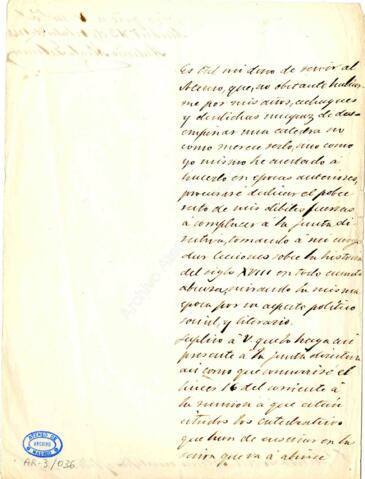 Es tal mi deseo de servir al
Ateneo, que, no obstante hallar-
me por mis años, achaques
y desdichas incapaz de des-
empeñar una catedra no
como merece serlo, sino como
yo mismo he acertado á
hacerlo en épocas anteriores,
procuraré dedicar el pobre
resto de mis débiles fuerzas
á complacer á la junta di-
rectiva, tomando á mi cargo
dar lecciones sobre la historia
del siglo XVIII en todo cuanto
abraza, mirando la misma
epoca por su aspecto politico
social, y literario.
Suplico á V. que lo haga asi
presente á la junta directiva
asi como que concurriré el
lunes 16 del corriente á
la reunion á que están
citados los catedraticos
que han de enseñar en la
que va á abrirse
ATENEO DE MADRID
ARCHIVO
AR-3/036
Archivo